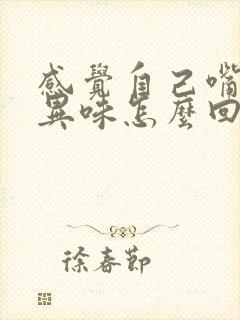 感覺自己嘴
異味怎麼回
徐春節